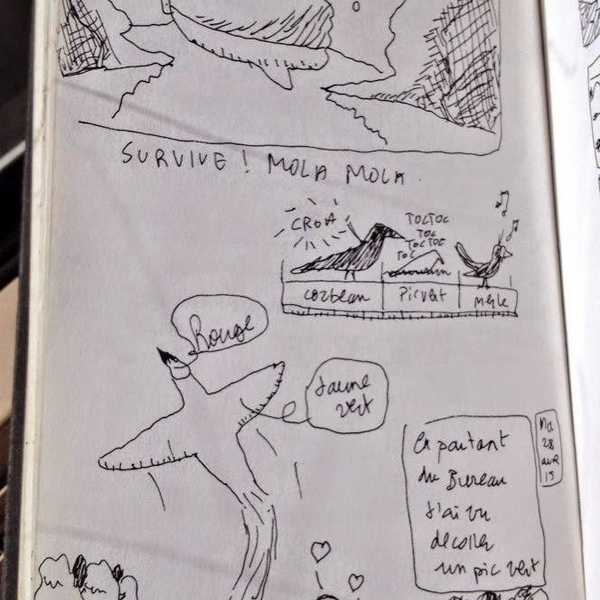 SURVIVE ! MOLA MOLA.
CROA
TOCTOC
TOC
TOCTOC
TOC
corbeau
Picvert
Merle
Rouge
Jaune
vert
En partant
du Bureau
J'ai vu
décoller
un pic vert
Ma
28
avr
15